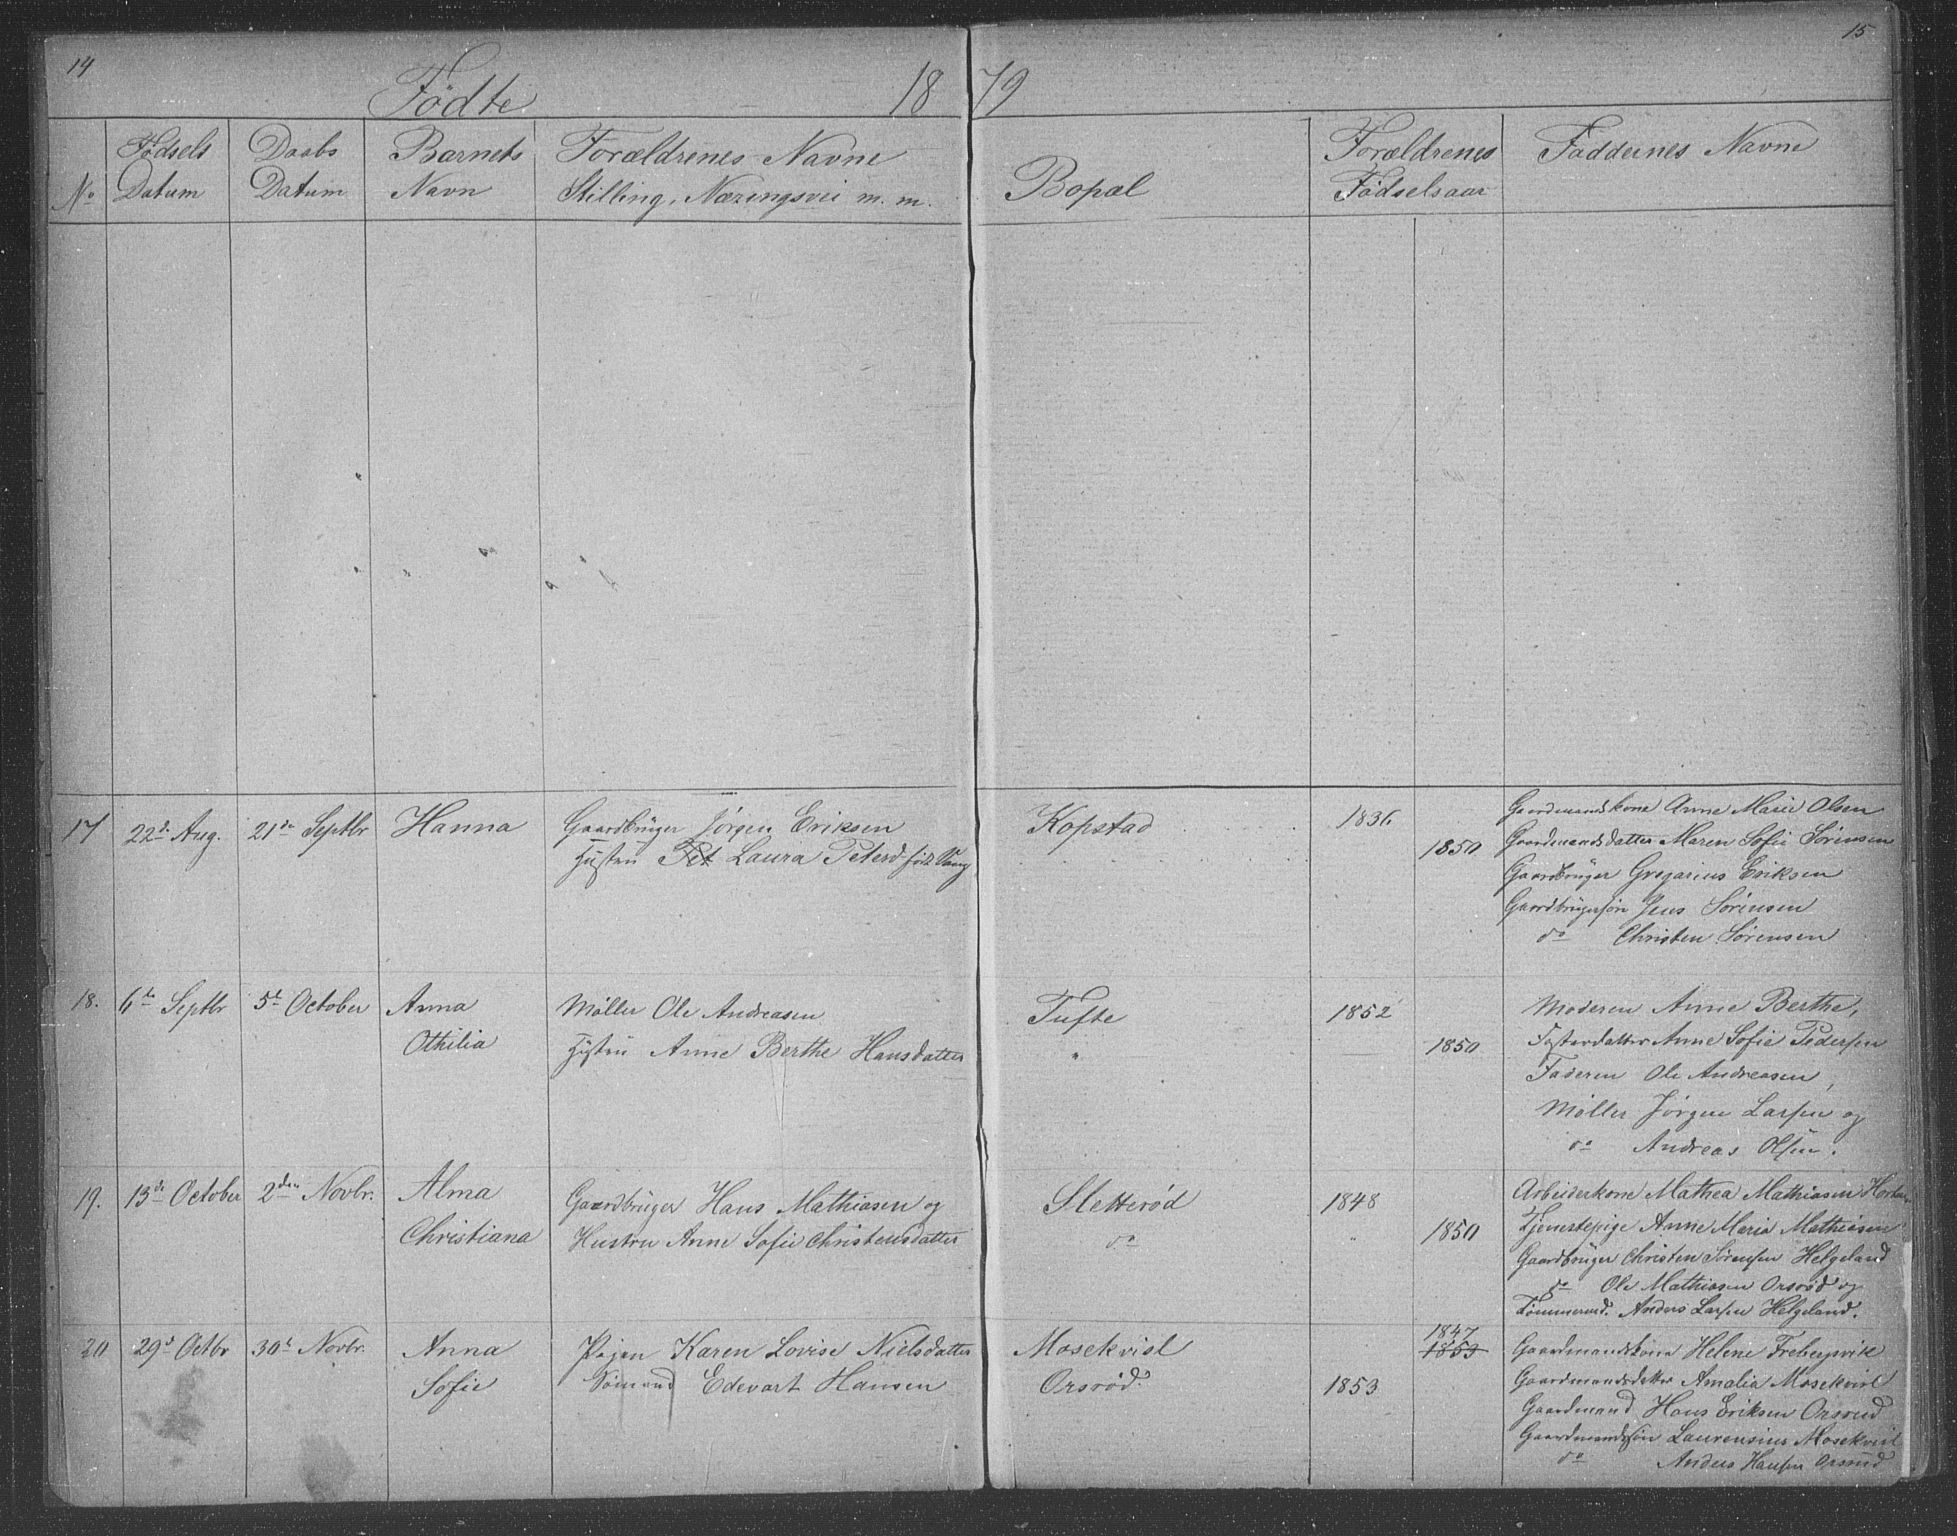 14
15
Födte
18 79
No
Födsels Datum
Daabs Datum
Barnets Navn
Forældrenes Navne
Stilling, Næringsvei m. m.
Bopæl
Forældrenes Födselsaar
Faddernes Navne
17 22d Aug. 21de Septbr Hanna
Gaardbrüger Jörgen Eriksen
Hustru Pet Laura Petersd. föd Vang
Kopstad 1836
1850
Gaardmandskone Anne Marie Olsen
Gaardmandsdatter Maren Sofie Sörensen
Gaardbrüger Gregarius Eriksen
Gaardbrügersön Jens Sörensen
do Christen Sörensen
18. 6te Septbr 5te October Anna
Othilia
Möller Ole Andreasen
Hustru Anne Berthe Hansdatter
Tufte 1852
" 1850
Moderen Anne Berthe,
Fosterdatter Anne Sofie Pedersen
Faderen Ole Andreasen,
Möller Jörgen Larsen og
do Andreas Olsen.
19. 13de October 2den Novbr. Alma
Christiana
Gaardbrüger Hans Mathiasen og
Hustru Anne Sofie Christensdatter
Sletteröd 1848
do " 1850
Arbeiderkone Mathea Mathiasen
Tjenestepige Anne Maria Mathiasen
Gaardbrüger Christen Sörensen Helgeland
do Ole Mathiasen Orsröd og
Tömmermd. Anders Larsen Helgeland.
20 29d Octbr 30te Novbr. Anna
Sofie
Pigen Karen Lovise Nielsdatter
Sömand Edevart Hansen
Mosekvisl
Orsröd.
1847
1853
1853
Gaardmandskone Helene Frebergsvik
Gaardmandsdatter Amalia Mosekvisl
Gaardmand Hans Eriksen Orsröd
Gaardmandssön Laurensius Mosekvisl
do Anders Hansen Orsröd